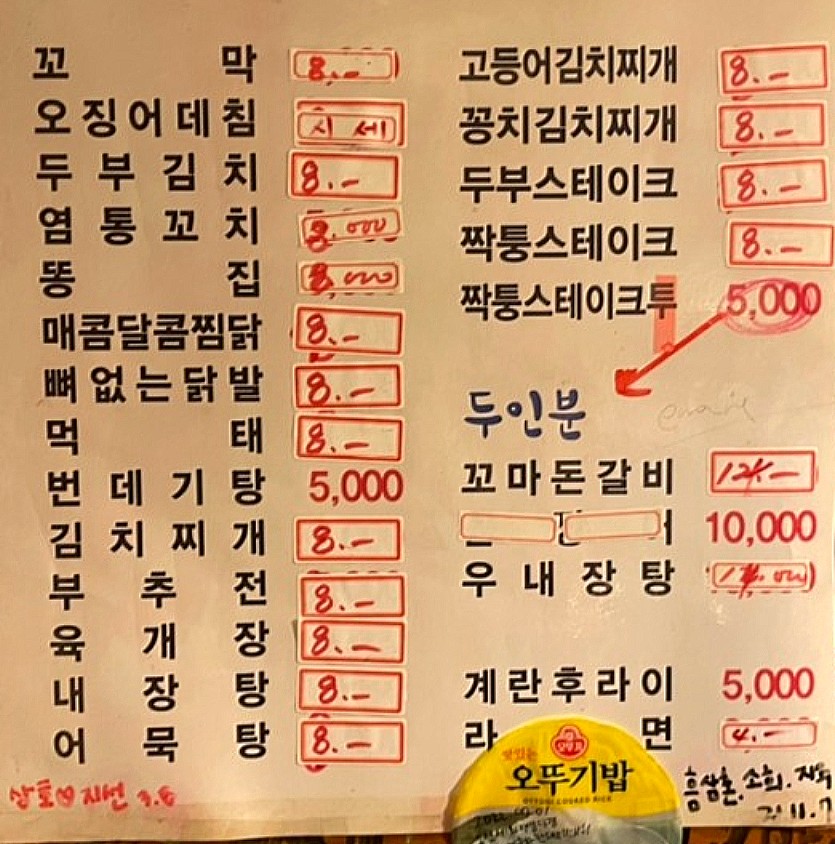 꼬막 8.-
오징어데침 시세
두부김치 8.-
염통꼬치 8.000
똥집 8.000
매콤달콤찜닭 8.-
뼈없는닭발 8.-
먹태 8.-
번데기탕 5,000
김치찌개 8.-
부추전 8.-
육개장 8.-
내장탕 8.-
어묵탕 8.-
상호♡지선
고등어김치찌개 8.-
꽁치김치찌개 8.-
두부스테이크 8.-
짝퉁스테이크 8.-
짝퉁스테이크투 5,000
두인분
꼬마돈갈비
10,000
우내장탕
계란후라이 5,000
라면 4.-
맛있는
오뚜기밥
OTTOGI COOKED RICE